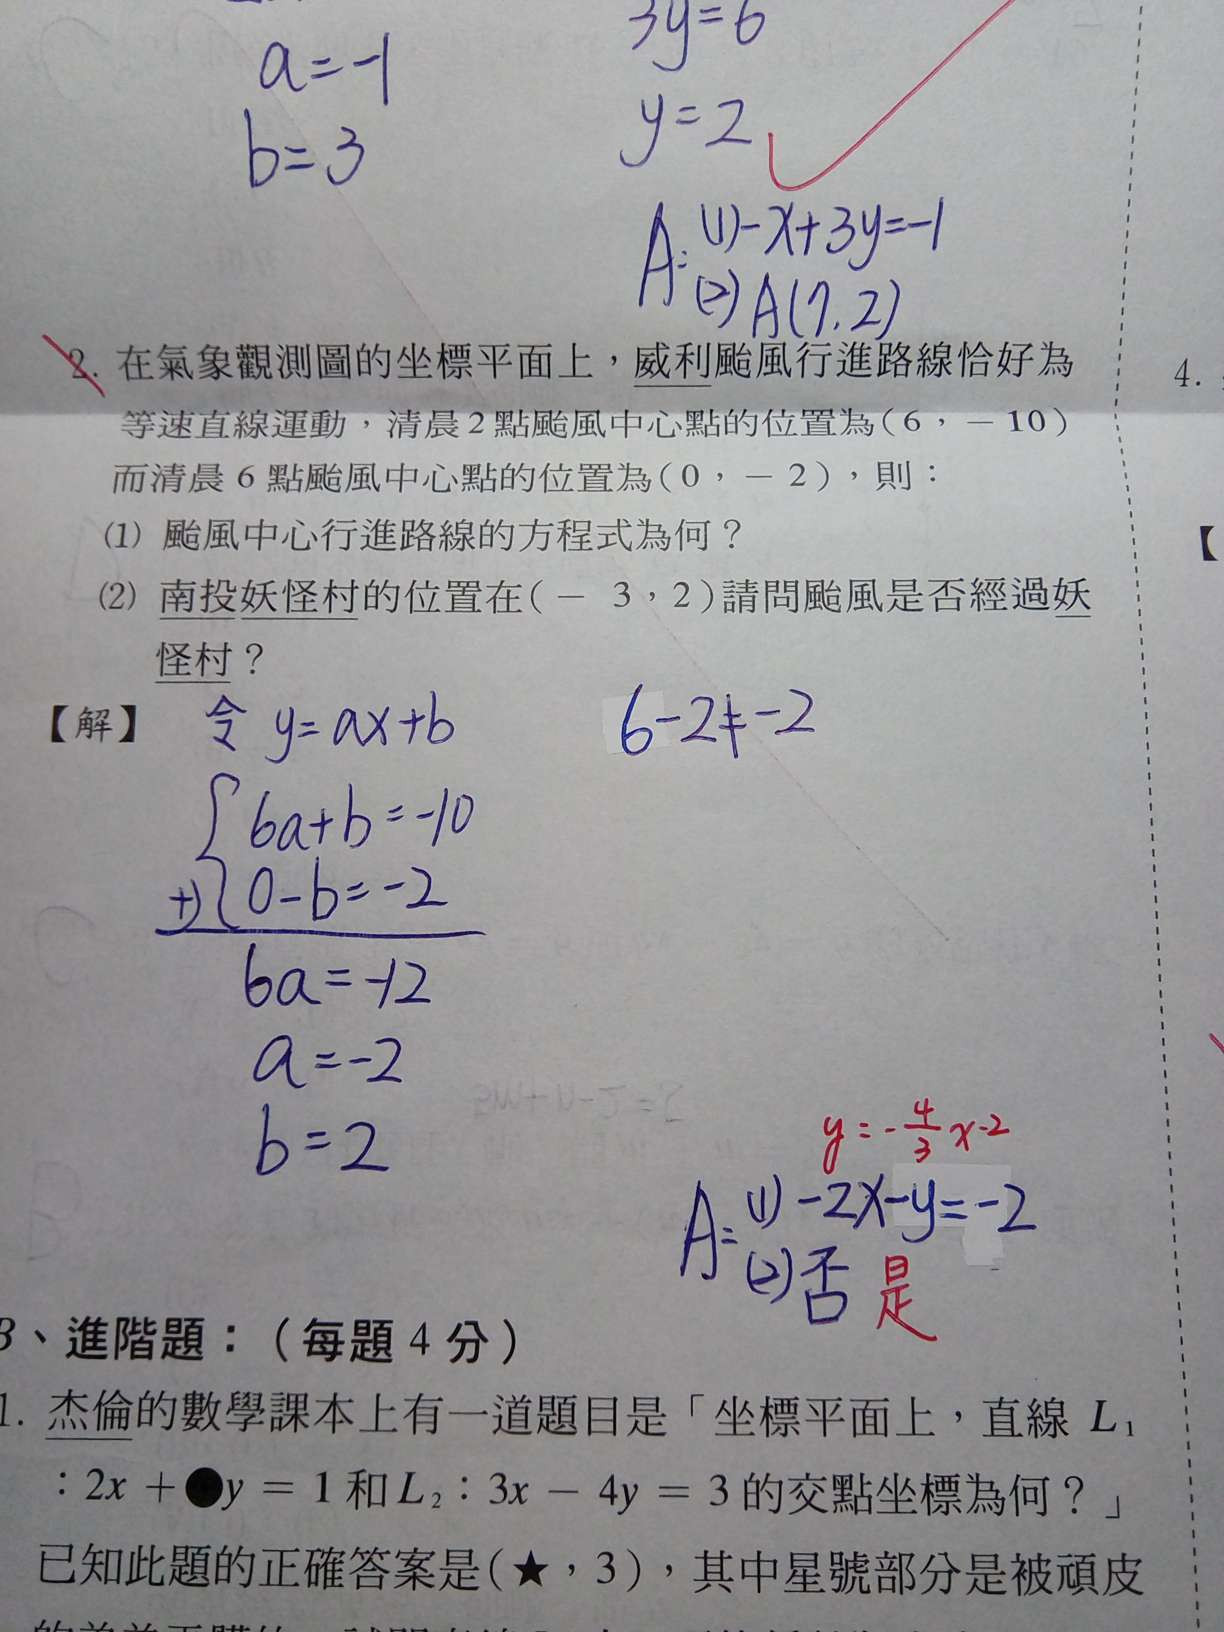 a=-1
b=3
3y=6
y=2
A: (1)-x+3y=-1
(2) A(7.2)
2. 在氣象觀測圖的坐標平面上，威利颱風行進路線恰好為
等速直線運動，清晨2點颱風中心點的位置為(6，－10)
而清晨 6 點颱風中心點的位置為(0，－2)，則：
(1) 颱風中心行進路線的方程式為何？
(2) 南投妖怪村的位置在(－ 3，2)請問颱風是否經過妖
怪村？
【解】 令 y=ax+b
6a+b=-10
+) 0-b=-2
6a=-12
a=-2
b=2
6-2≠-2
y=-4/3 x-2
A: (1) -2x-y=-2
(2) 否 是
4.
【
B、進階題：（每題 4 分）
1. 杰倫的數學課本上有一道題目是「坐標平面上，直線 L₁
：2x ＋●y ＝ 1 和 L₂：3x － 4y ＝ 3 的交點坐標為何？」
已知此題的正確答案是(★，3)，其中星號部分是被頑皮